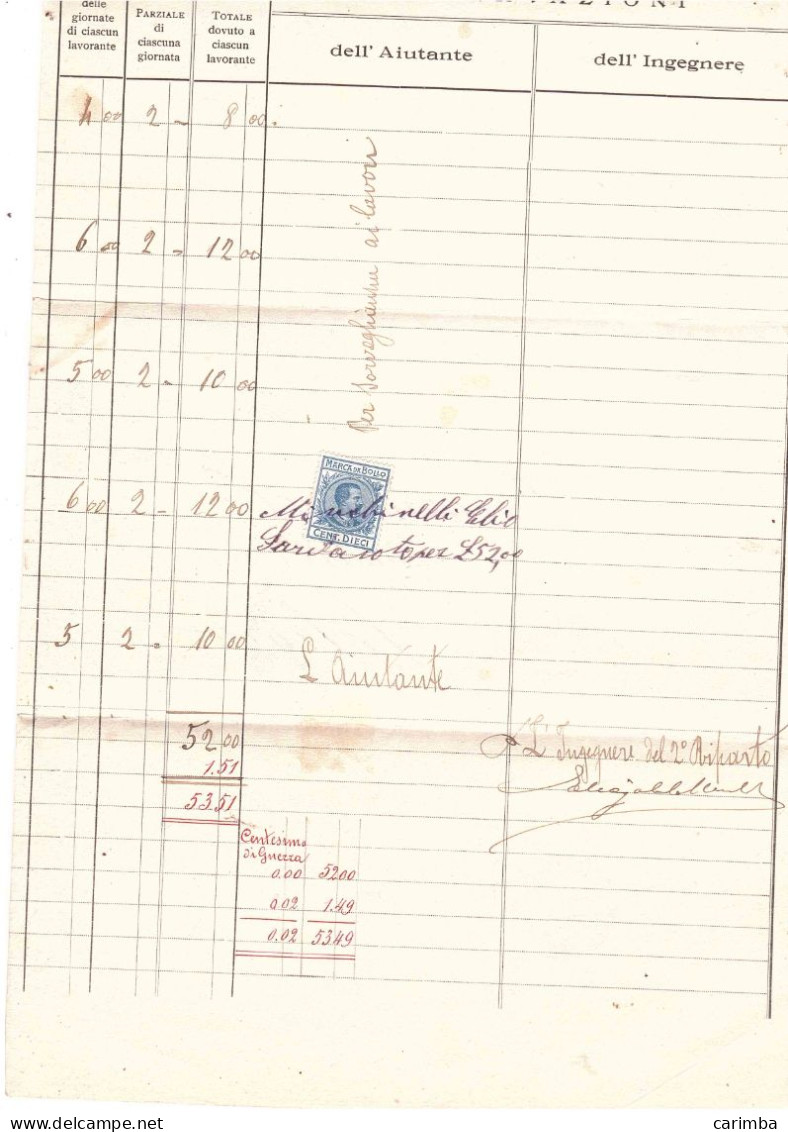 delle
giornate
di ciascun
lavorante
PARZIALE
di
ciascuna
giornata
TOTALE
dovuto a
ciascun
lavorante
AZIONI
dell' Aiutante
dell' Ingegnere
4 00 2 - 8 00
6 00 2 - 12 00
5 00 2 - 10 00
6 00 2 - 12 00
5 2 - 10 00
Per ai lavori
MARCA DA BOLLO
CENT. DIECI
Elio
per £52,00
L'Aiutante
52 00
1.51
53 51
L'Ingegnere del 2° Riparto
Centesimo
di Guerra
0.00 52 00
0.02 1.49
0.02 53 49
delcampe.net
carimba